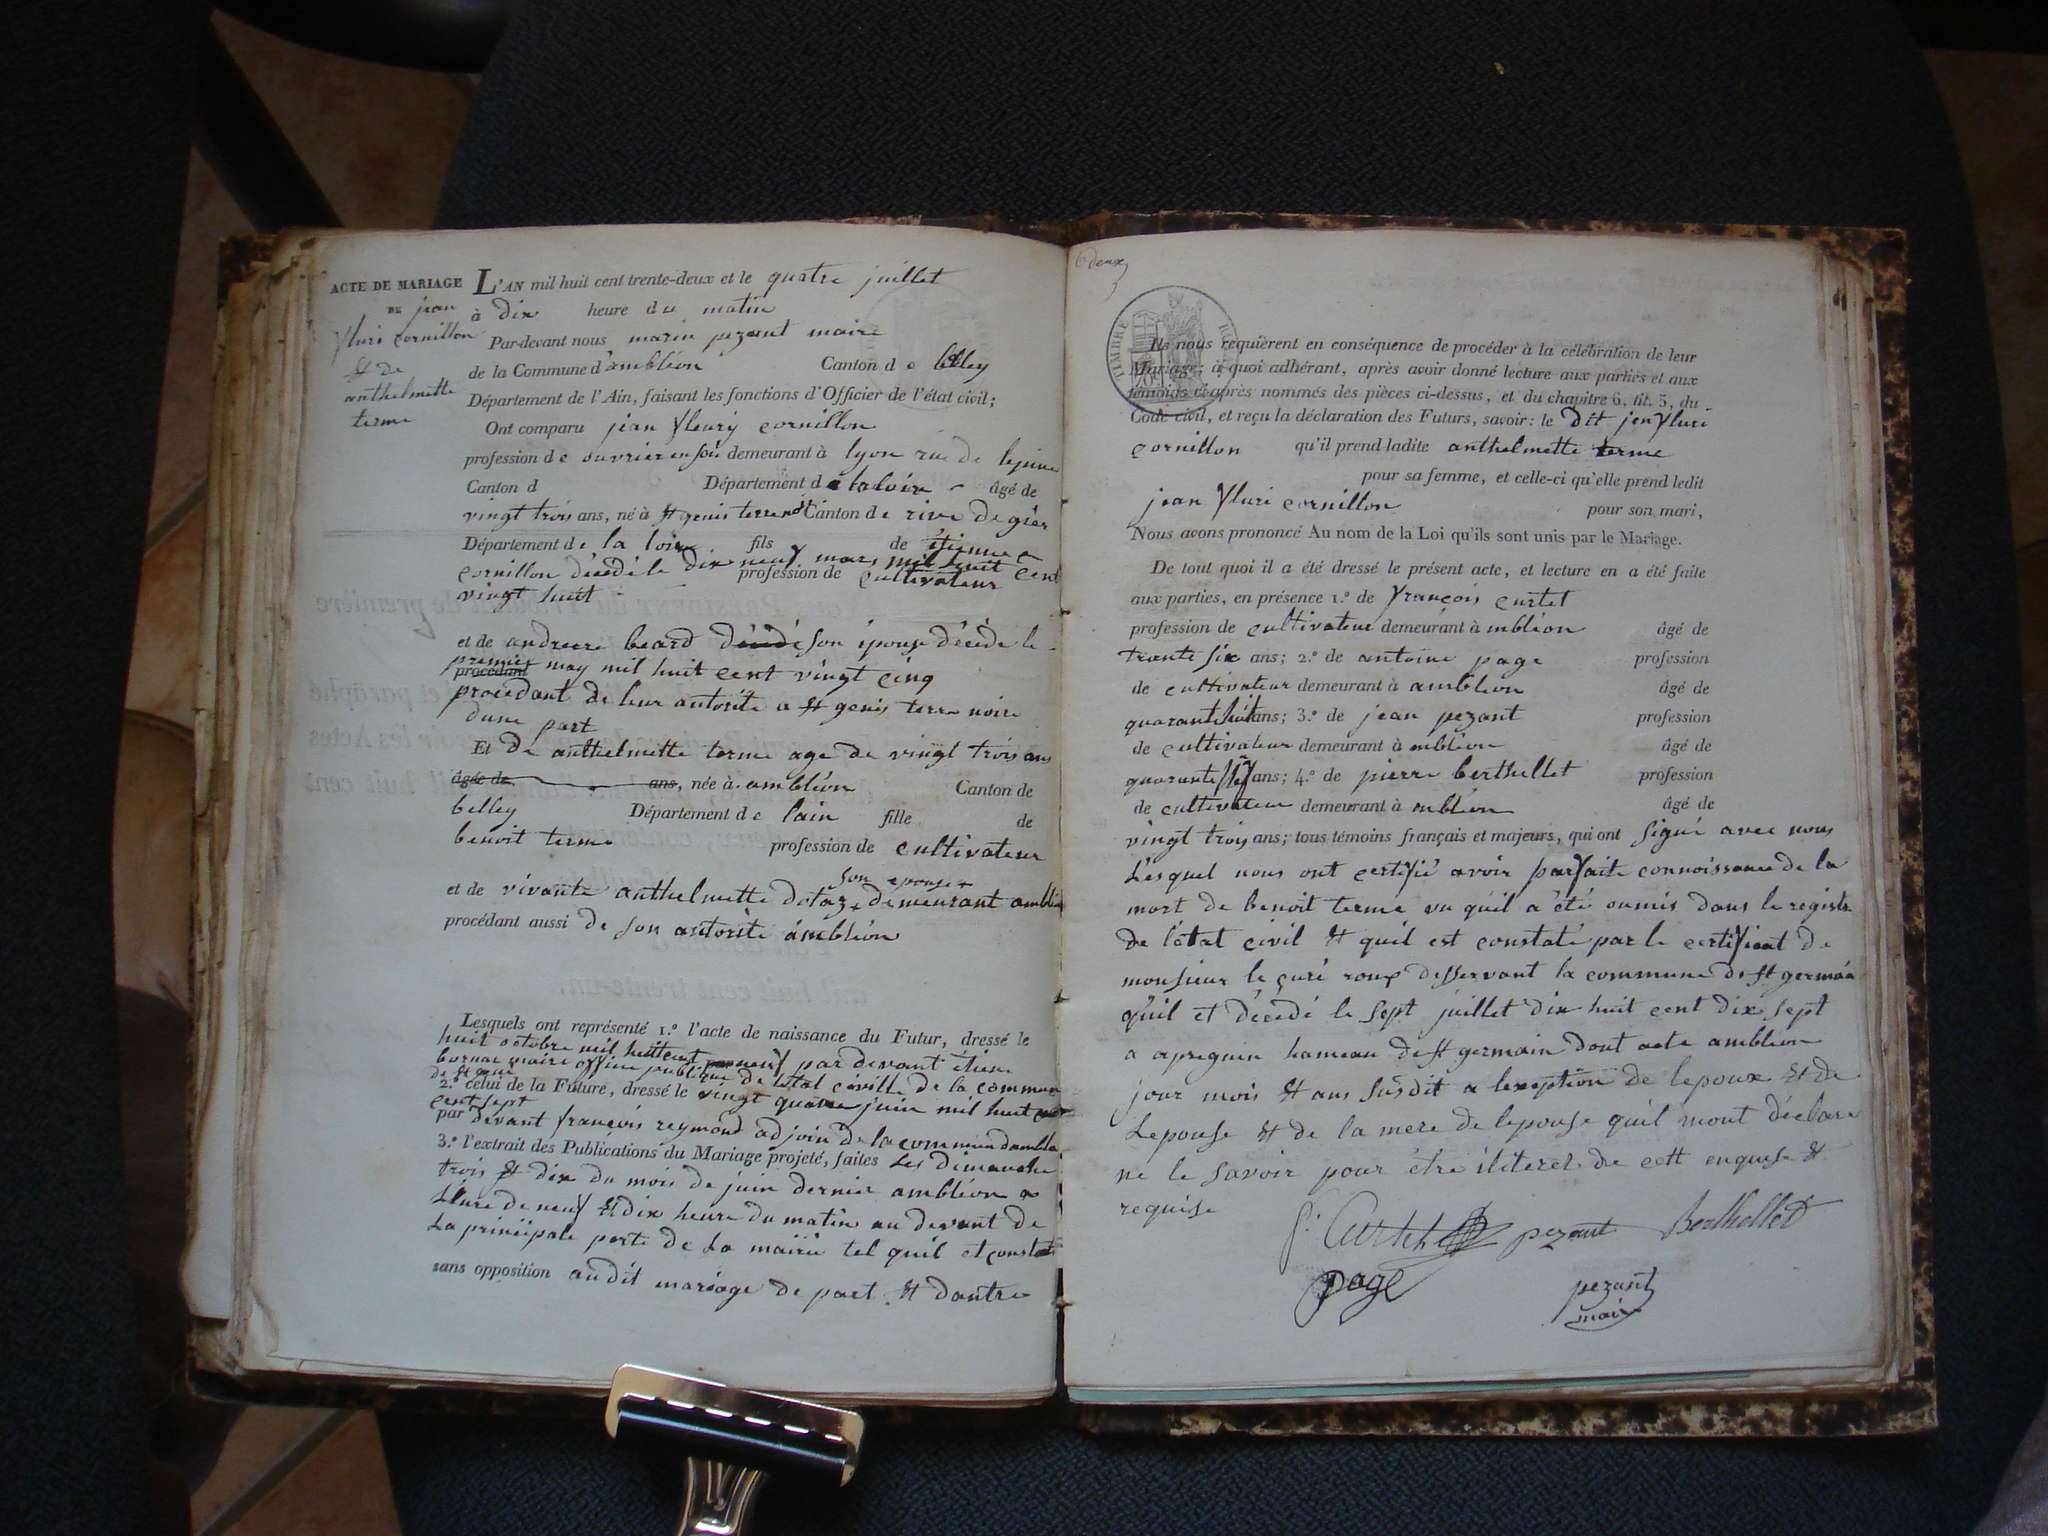 ACTE DE MARIAGE
DE jean
fluri cornillon
et de
anthelmette
terme
L'AN mil huit cent trente-deux et le quatre juillet
à dix heure du matin
Par-devant nous marin pezant maire
de la Commune d'ambléon Canton de belley
Département de l'Ain, faisant les fonctions d'Officier de l'état civil;
Ont comparu jean fleury cornillon
profession de ouvrier en soie demeurant à lyon rue de
Canton d Département de la loire âgé de
vingt trois ans, né à st genis terrenoir Canton de rive de gier
Département de la loire fils de étienne
cornillon décédé le dix neuf mars mil huit cent
profession de cultivateur
vingt huit
et de andreere beard décédé son épouse décédé le
premier may mil huit cent vingt cinq
procédant
procédant de leur autorité a st genis terre noire
dune part
Et de anthelmette terme age de vingt trois ans
âgée de ans, née à ambléon Canton de
belley Département de lain fille de
benoit terme profession de cultivateur
son epouse
et de vivante anthelmette dotaz demeurant ambléon
procédant aussi de son autorité ambléon
Lesquels ont représenté 1.º l'acte de naissance du Futur, dressé le
huit octobre mil huit cent neuf par devant étiene
maire officie publique de létal civille de la commune
de st genis
2.º celui de la Future, dressé le vingt quatre juin mil huit cent
cent sept
par devant françois reymond adjoin de la commun dambléon
3.º l'extrait des Publications du Mariage projeté, faites Les dimanche
trois et dix du mois de juin dernier ambléon a
Lhure de neuf et dix heure du matin au devant de
La principale porte de La mairie tel quil et constaté
sans opposition audit mariage de part et dautre
6 deux
TIMBRE
Ils nous requièrent en conséquence de procéder à la célébration de leur
Mariage; à quoi adhérant, après avoir donné lecture aux parties et aux
témoins ci-après nommés des pièces ci-dessus, et du chapitre 6, tit. 5, du
Code civil, et reçu la déclaration des Futurs, savoir: le dit jen fluri
cornillon qu'il prend ladite anthelmette terme
pour sa femme, et celle-ci qu'elle prend ledit
jean fluri cornillon pour son mari,
Nous avons prononcé Au nom de la Loi qu'ils sont unis par le Mariage.
De tout quoi il a été dressé le présent acte, et lecture en a été faite
aux parties, en présence 1.º de françois curtet
profession de cultivateur demeurant à mbléon âgé de
trante six ans; 2.º de antoine page profession
de cultivateur demeurant à ambléon âgé de
quarante huit ans; 3.º de jean pezant profession
de cultivateur demeurant à mbléon âgé de
quarante sept ans; 4.º de pierre berthellet profession
de cultivateur demeurant à mbléon âgé de
vingt trois ans; tous témoins français et majeurs, qui ont signé avec nous
Lesquel nous ont certifié avoir parfaite connoissance de la
mort de benoit terme vu quil a été oumis dans le registre
de létat civil et quil est constaté par le certificat de
monsieur le curé roux desservant la commune de st germain
quil et décédé le sept juillet dix huit cent dix sept
a apreguin hameau de st germain dont acte ambléon
jour mois et ans susdit a lexeption de lepoux et de
Lepouse et de la mere de lepouse quil mont déclare
ne le savoir pour être iliteret de cett enquise et
requise
f. Curtet pezant Berthellet
page pezant
maire